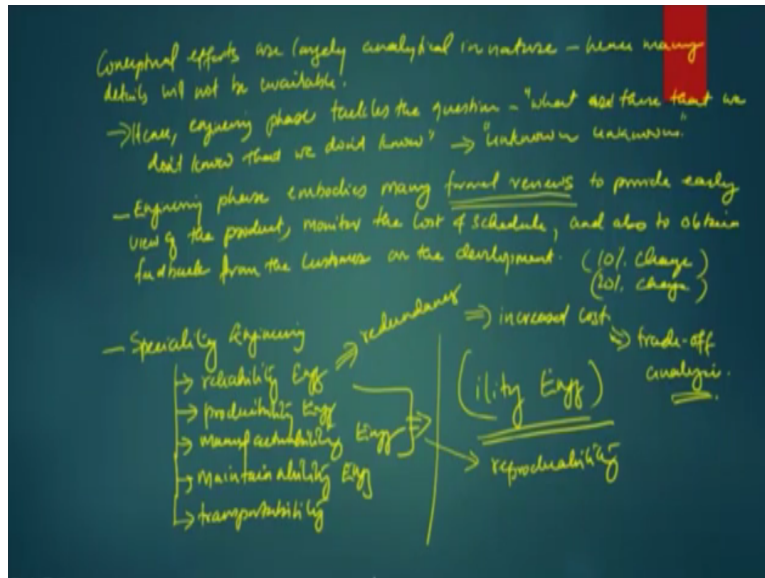 Conceptual efforts are largely analytical in nature – hence many
details will not be available.
→ Hence, enginering phase tackles the question – "what are there that we
don't know that we don't know" → "unknown unknown".
– Enginering phase embodies many formal reviews to provide early
view of the product, monitor the cost & schedule, and also to obtain
feedback from the customer on the development. (10% change)
(20% change)
– Speciality Enginering
→ reliability Engg ⇒ redundancy ⇒ increased cost. ⇒ trade-off
analysis.
→ producibility Engg
→ Manufacturability Engg ⇒ (ility Engg)
→ Maintainability Engg → reproducability
→ transportability